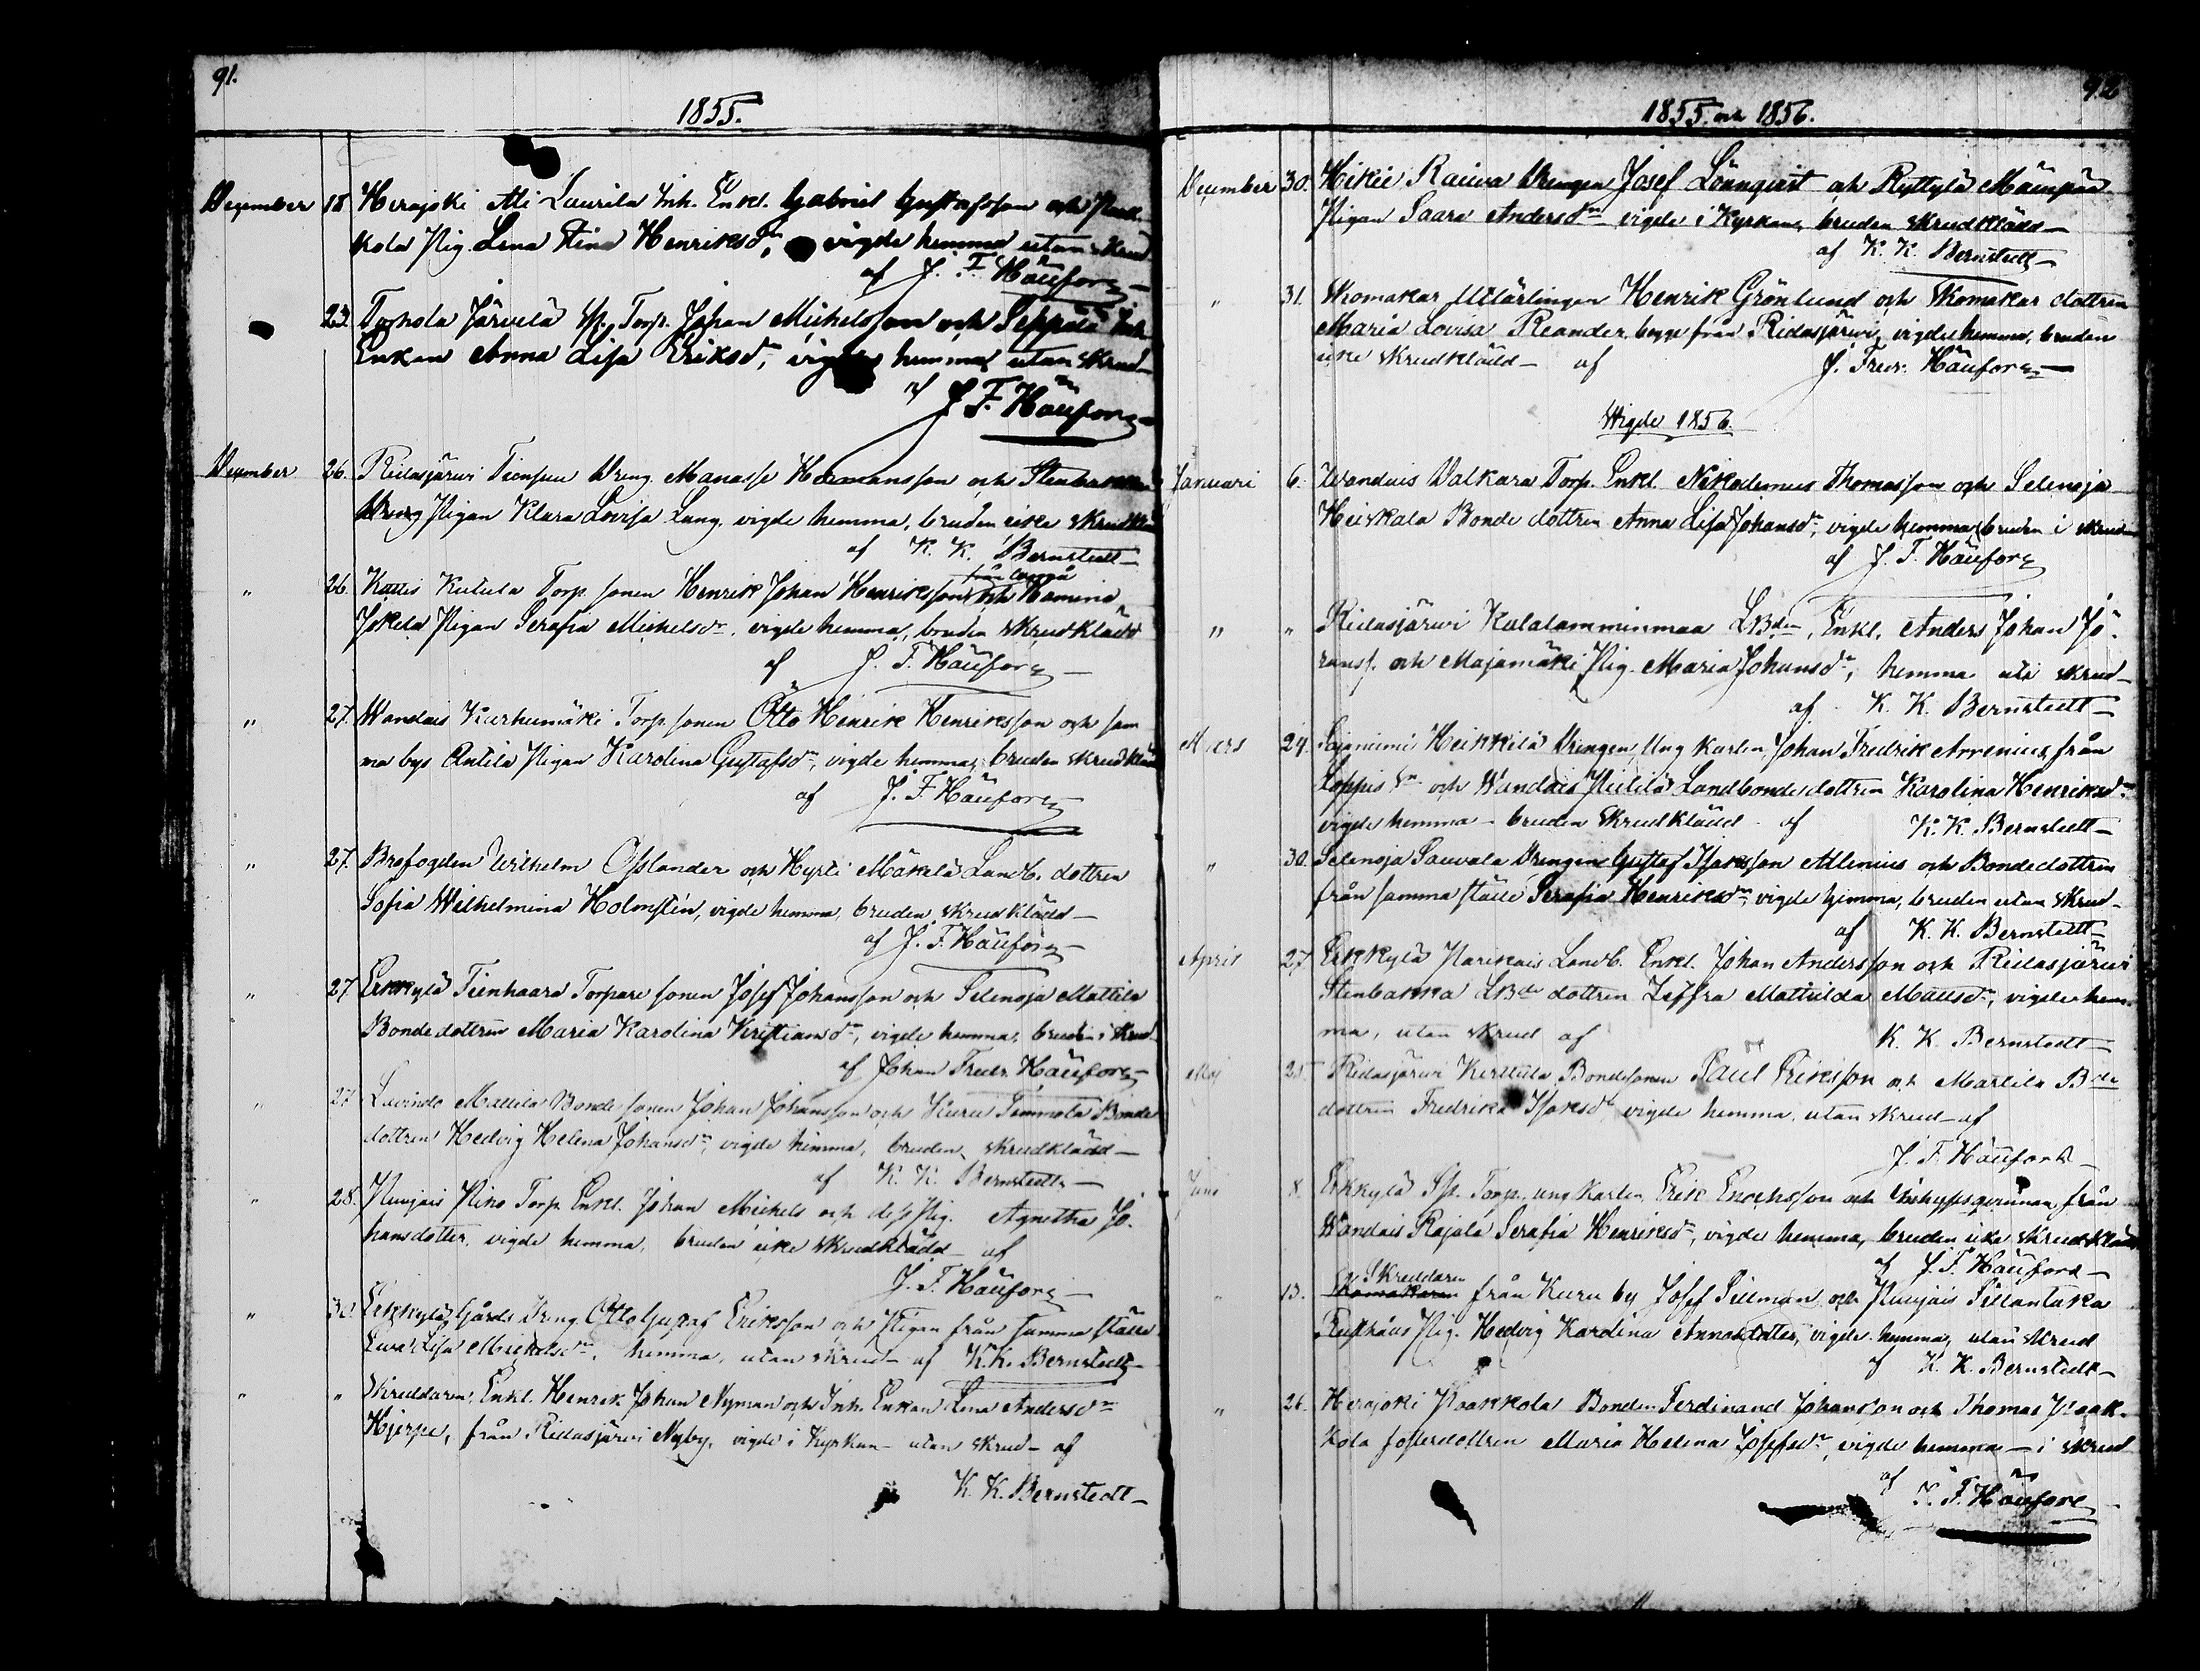 91.
1855.
December 18. Herajoki Ali Laurila Inh. Enkl. Gabriel Gustafsson och Paak-
kola Pig. Lena Stina Henriksdr, vigde hemma utan skrud
af J. F. Häufors
23. Torhola Järvelä Sp. Torp. Johan Michelsson och Seppälä Inh.
Enkan Anna Lisa Eriksdr, vigde hemma utan skrud
af J. F. Häufors
December 26. Ridasjärvi Dreng. Manasse Hermansson och Stenbacka
Pigan Klara Lovisa Lang, vigde hemma, bruden icke skrudklädd
af K. K. Bernstedt
" 26. Kattis Kutula Torp. sonen Henrik Johan Henriksson och Hamina
Jokela Pigan Serafia Michelsdr, vigde hemma, bruden skrudklädd
af J. F. Häufors
" 27. Wandais Karhumäki Torp. sonen Otto Henrik Henriksson och sam
ma bys Antila Pigan Karolina Gustafsdr, vigde hemma, bruden skrudklädd
af J. F. Häufors
" 27. Brofogden Wilhelm Osslander och Hyrti Mäkelä Landb. dottren
Sofia Wilhelmina Holmstén, vigde hemma, bruden skrudklädd
af J. F. Häufors
" 27. Erkkylä Tienhaara Torpare sonen Josef Johansson och Selenoja Mattila
Bonde dottren Maria Karolina Kristiansdr, vigde hemma, bruden i skrud
af Johan Fredr. Häufors
" 27. Mattila Bonde sonen Johan Johansson och Kuru Simmola Bonde
dottren Hedvig Helena Johansdr, vigde hemma, bruden skrudklädd
af K. K. Bernstedt
" 28. Punjais Piko Torp. Enkl. Johan Michels och dess Pig. Agnetha Jo-
hansdotter, vigde hemma, bruden icke skrudklädd af
J. F. Häufors
" 30. Erkkylä Gårds Dreng Otto Gustaf Eriksson och Pigan från samma ställe
Eva Lisa Michelsdr, hemma, utan skrud af K. K. Bernstedt
" " Skreddaren, Enkl. Henrik Johan Nyman och Inh. Enkan Lena Andersdr
Hjerpe, från Ridasjärvi Nyby, vigde i Kyrkan utan skrud af
K. K. Bernstedt
92
1855 och 1856.
December 30. Hikiä Raiwa Drengen Josef Lönnqvist och Ryttylä Mäenpää
Pigan Saara Andersdr vigde i Kyrkan, bruden skrudklädd
af K. K. Bernstedt
" 31. Skomakar Lärlingen Henrik Grönlund och Skomakar dottren
Maria Lovisa Reander, begge från Ridasjärvi, vigde hemma, bruden
icke skrudklädd af J. Fredr. Häufors
Wigde 1856.
Januari 6. Wandais Valkara Torp. Enkl. Nikodemus Thomasson och Selenoja
Heiskala Bonde dottren Anna Lisa Johansdr, vigde hemma, bruden i skrud
af J. F. Häufors
" " Ridasjärvi Kulalamminmaa LBden, Enkl. Anders Johan Jo-
hanss. och Majamäki Pig. Maria Johansdr, hemma uti skrud
af K. K. Bernstedt
Mars 24. Sajaniemi Heikkilä Drengen, Ung Karlen, Johan Fredrik Arrenius, från
Loppis Sn och Wandais Pietilä Landbondedottren Karolina Henriksdr
vigde hemma bruden skrudklädd af K. K. Bernstedt
" 30. Selenoja Sauvala Drengen Gustaf Isaksson Allenius och Bondedottren
från samma ställe Serafia Henriksdr, vigde hemma, bruden utan skrud
af K. K. Bernstedt
April 27. Erkkylä Parikais Landb. Enkl. Johan Andersson och Ridasjärvi
Stenbacka LBde dottren Zeffra Mathilda Mattsdr, vigde hem-
ma, utan skrud af K. K. Bernstedt
Maj 25. Ridasjärvi Kerttula Bondesonen Paul Eriksson och Martila Bde
dottren Fredrika Isaksdr vigde hemma, utan skrud af
J. F. Häufors
Juni 8. Erkkylä Sp. Torp. ung karlen Erik Enochsson och Inhysesqvinnan från
Wandais Rajala Serafia Henriksdr, vigde hemma, bruden icke skrudklädd
af J. F. Häufors
" 13. Skreddaren från Kuru by Josef Sillman och Punjais Sillantaka
Pig. Hedvig Karolina Annasdotter, vigde hemma, utan skrud
af K. K. Bernstedt
" 26. Herajoki Paakkola Bonden Ferdinand Johansson och Thomas Paak-
kola fosterdottren Maria Helena Josefsdr, vigde hemma i skrud
af J. F. Häufors